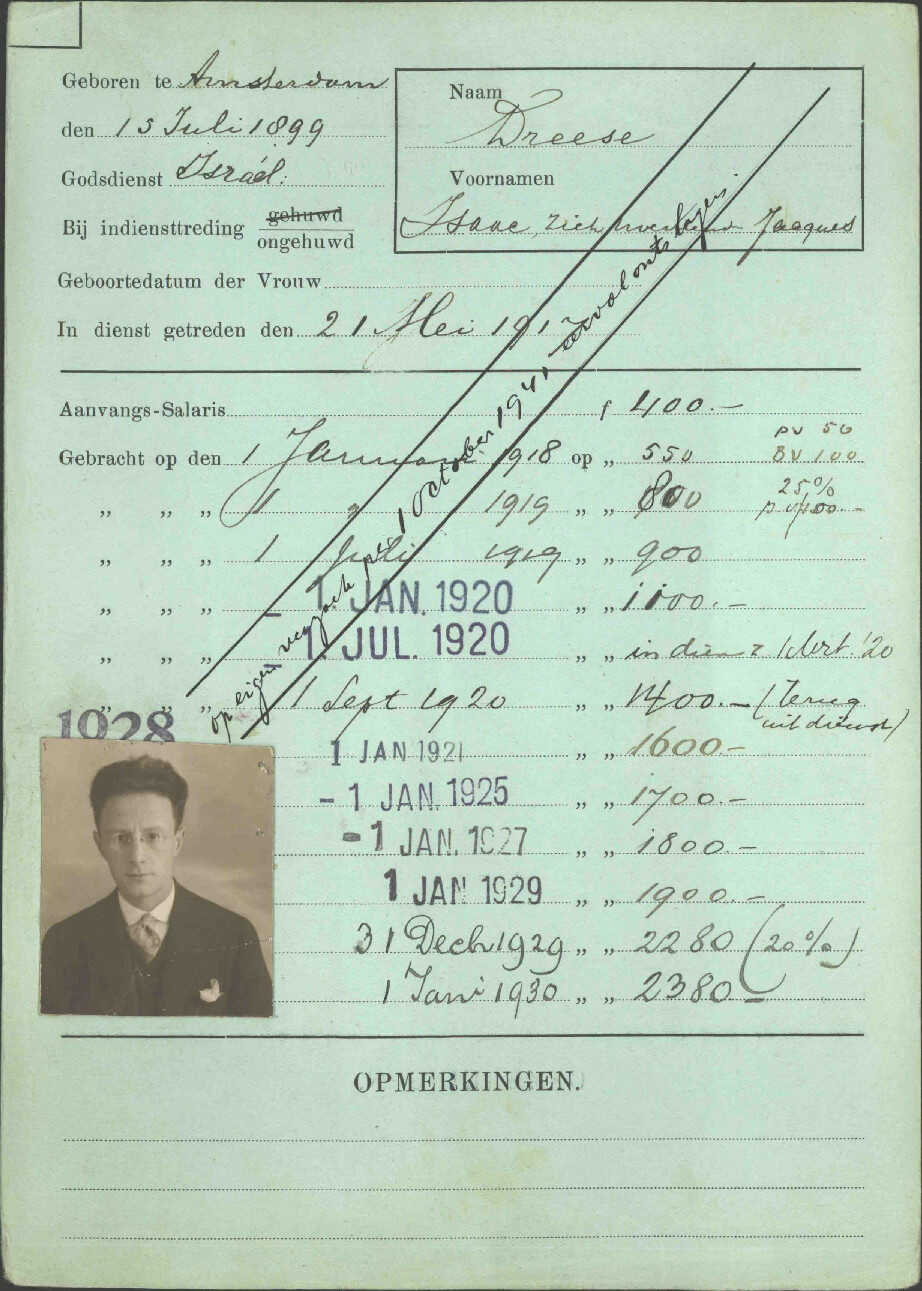 Geboren te Amsterdam
den 15 Juli 1899
Godsdienst Israël:
Bij indiensttreding gehuwd
ongehuwd
Naam
Dreese
Voornamen
Isaac, zich noemend Jacques
Geboortedatum der Vrouw
In dienst getreden den 21 Mei 1917
Aanvangs-Salaris f 400.-
pv 50
Gebracht op den 1 Januari 1918 op „ 550 BV 100
25%
„ „ „ 1 „ 1919 „ „ 800
„ „ „ 1 Juli 1919 „ „ 900
„ „ „ - 1. JAN. 1920 „ „ 1100.-
„ „ „ 1. JUL. 1920 „ „ in dienst '20
„ „ „ 1 Sept 1920 „ „ 1400.- (terug
uit dienst)
1928
1 JAN 1921 „ „ 1600-
- 1 JAN. 1925 „ „ 1700.-
- 1 JAN. 1927 „ „ 1800.-
1 JAN 1929 „ „ 1900.-
31 Decb 1929 „ „ 2280 (20%)
1 Jani 1930 „ „ 2380.-
op eigen verzoek per 1 October 1941 eervol ontslagen.
OPMERKINGEN.